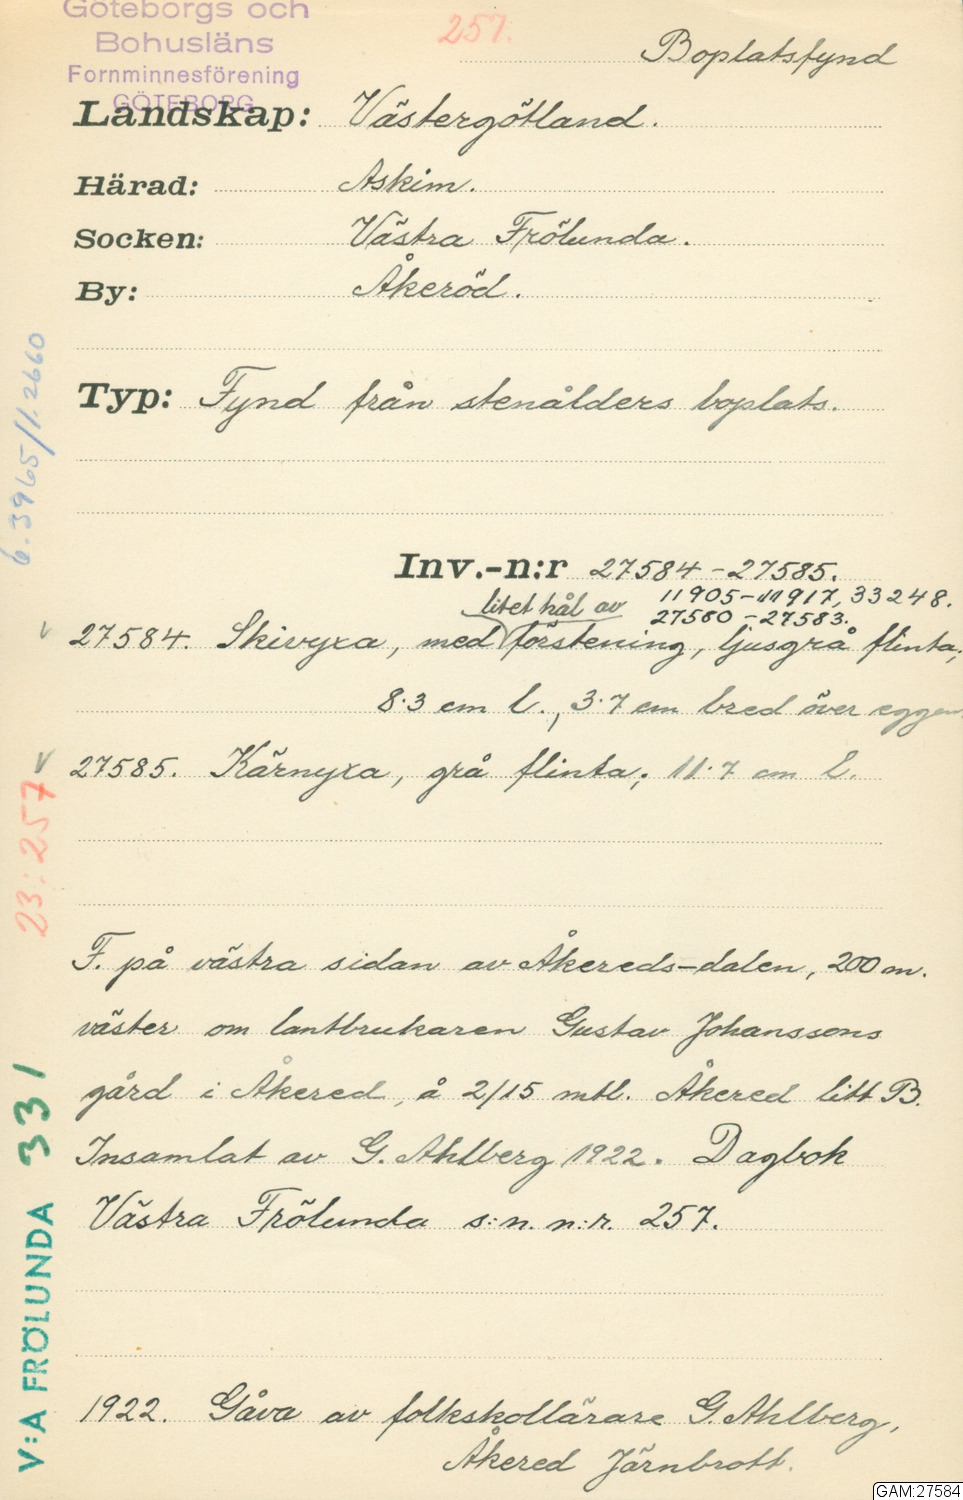 Göteborgs och
Bohusläns
Fornminnesförening
GÖTEBORG
257.
Boplatsfynd
Landskap: Västergötland.
Härad: Askim.
Socken: Västra Frölunda.
By: Åkeröd.
Typ: Fynd från stenålders boplats.
Inv.-n:r 27584-27585.
11905-11917, 33248.
27580-27583.
litet hål av
27584. Skivyxa, med förstening, ljusgrå flinta;
8.3 cm l., 3.7 cm bred över eggen
27585. Kärnyxa, grå flinta; 11.7 cm l.
F. på västra sidan av Åkereds-dalen, 200 m.
väster om lantbrukaren Gustav Johanssons
gård i Åkered, å 2/15 mtl. Åkered litt B.
Insamlat av G. Ahlberg 1922. Dagbok
Västra Frölunda s:n. n:r. 257.
1922. Gåva av folkskollärare G. Ahlberg,
Åkered Järnbrott.
6.3965/1.2660
23:257
V:A FRÖLUNDA 331
GAM:27584